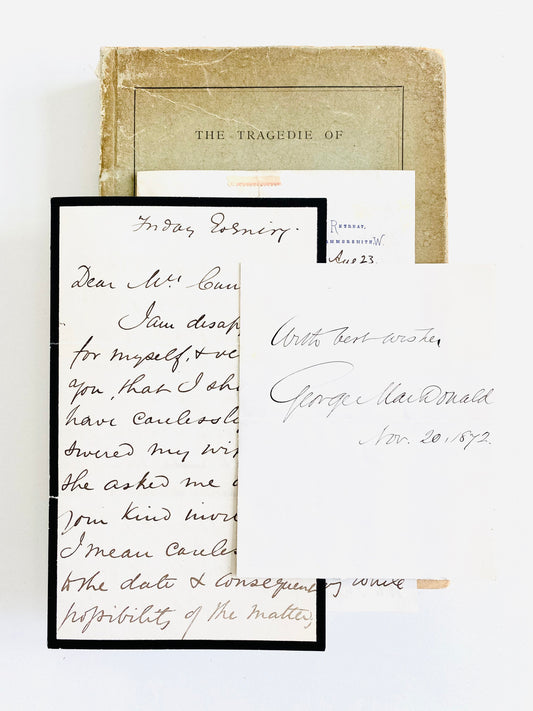 THE TRAGEDIE OF
RETREAT,
AMMERSMITH, W.
Aug 23.
Friday Evening.
Dear Mrs
I am disap
for myself, & ve
you, that I sh
have carelessl
swered my wi
she asked me
your kind invi
I mean careles
to the date & consequen
possibility of the matter,
With best wishes,
George MacDonald
Nov. 20, 1872.